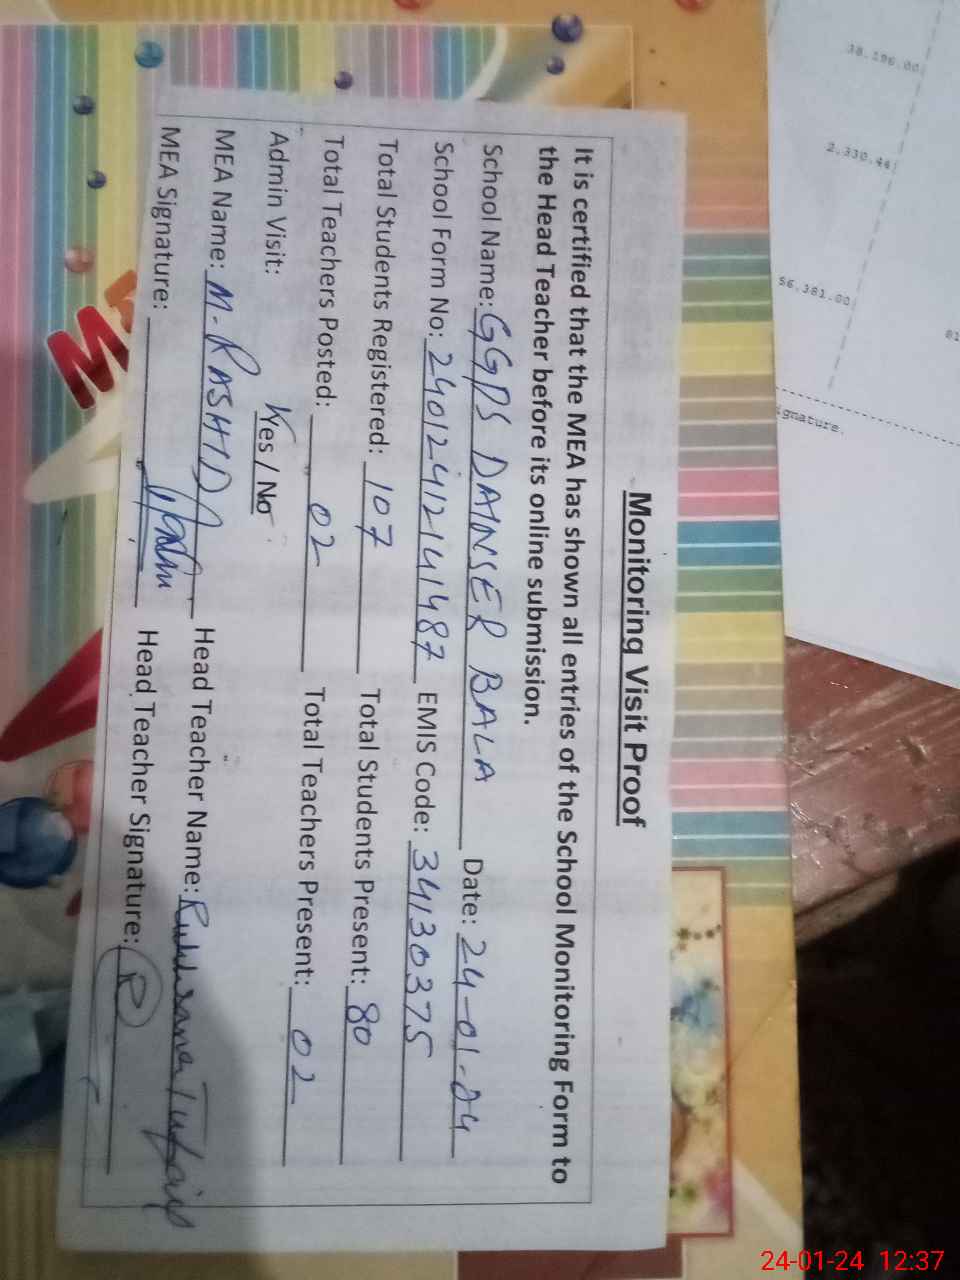 Monitoring Visit Proof
It is certified that the MEA has shown all entries of the School Monitoring Form to
the Head Teacher before its online submission.
School Name: GGPS DAINSER BALA Date: 24-01-24
School Form No: 24012412141487 EMIS Code: 34130375
Total Students Registered: 107 Total Students Present: 80
Total Teachers Posted: 02 Total Teachers Present: 02
Admin Visit: Yes / No
MEA Name: M. RASHID Head Teacher Name: Rukhsana Tufail
MEA Signature: Head Teacher Signature: R
38,196.00
2,330.44
56,381.00
ignature.
24-01-24 12:37